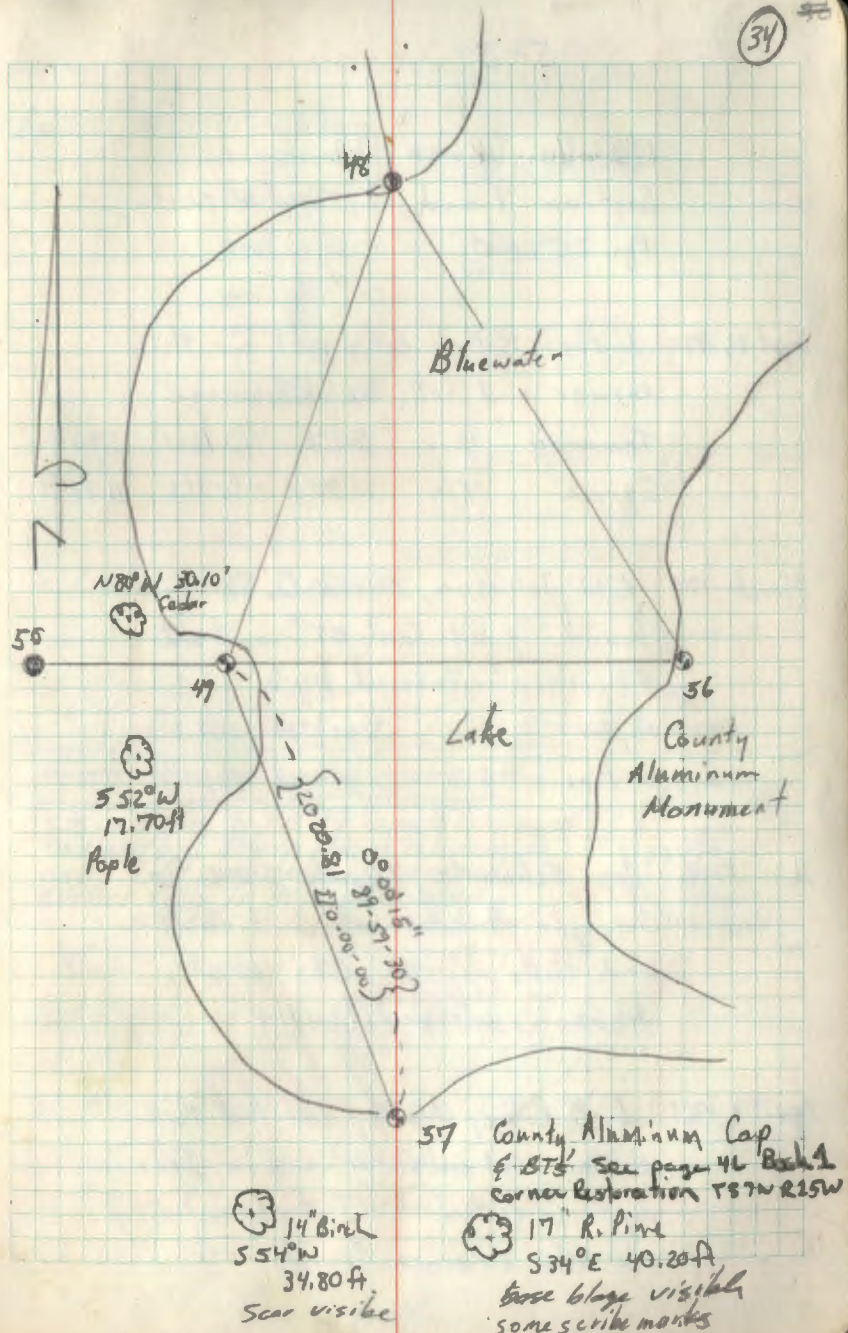 34
48
Bluewater
N 80° W 30.10'
Cedar
55
49
56
Lake
County
Aluminum
Monument
S 52° W
17.70 ft
Pople
2020.81
0° 00' 15"
89-59-30
110-00-00
57
County Aluminum Cap
& BTS' See page 46 Book 1
corner Restoration T57N R25W
14" Birch
S 54° W
34.80 ft.
Scar visibe
17" R. Pine
S 34° E 40.20 ft
base blaze visible
some scribe marks